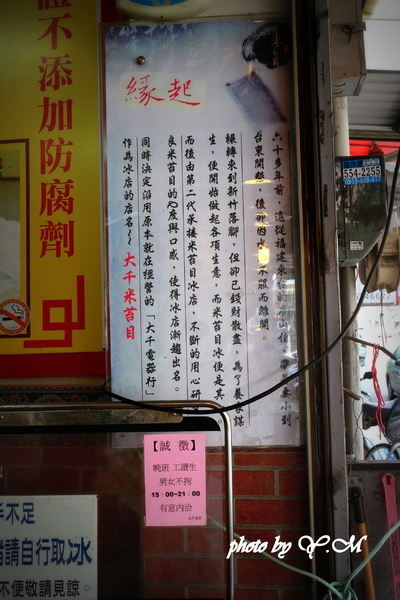 不添加防腐劑
緣起
六十多年前，遠從福建來
台東開墾，後耐因水 不服而離開。
輾轉來到新竹落腳，但卻已錢財散盡，為了養 謀
生，便開始做起各項生意，而米苔目冰便是其
而後由第二代承接米苔目冰店，不斷的用心研
良米苔目的Q度與口感，使得冰店漸趨出名。
同時決定沿用原本就在經營的「大千電器行」
作為冰店的店名～大千米苔目
554-2255
【誠徵】
晚班 工讀生
男女不拘
15：00~21：00
有意內洽
手不足
請自行取冰
不便敬請見諒。
photo by Y.M